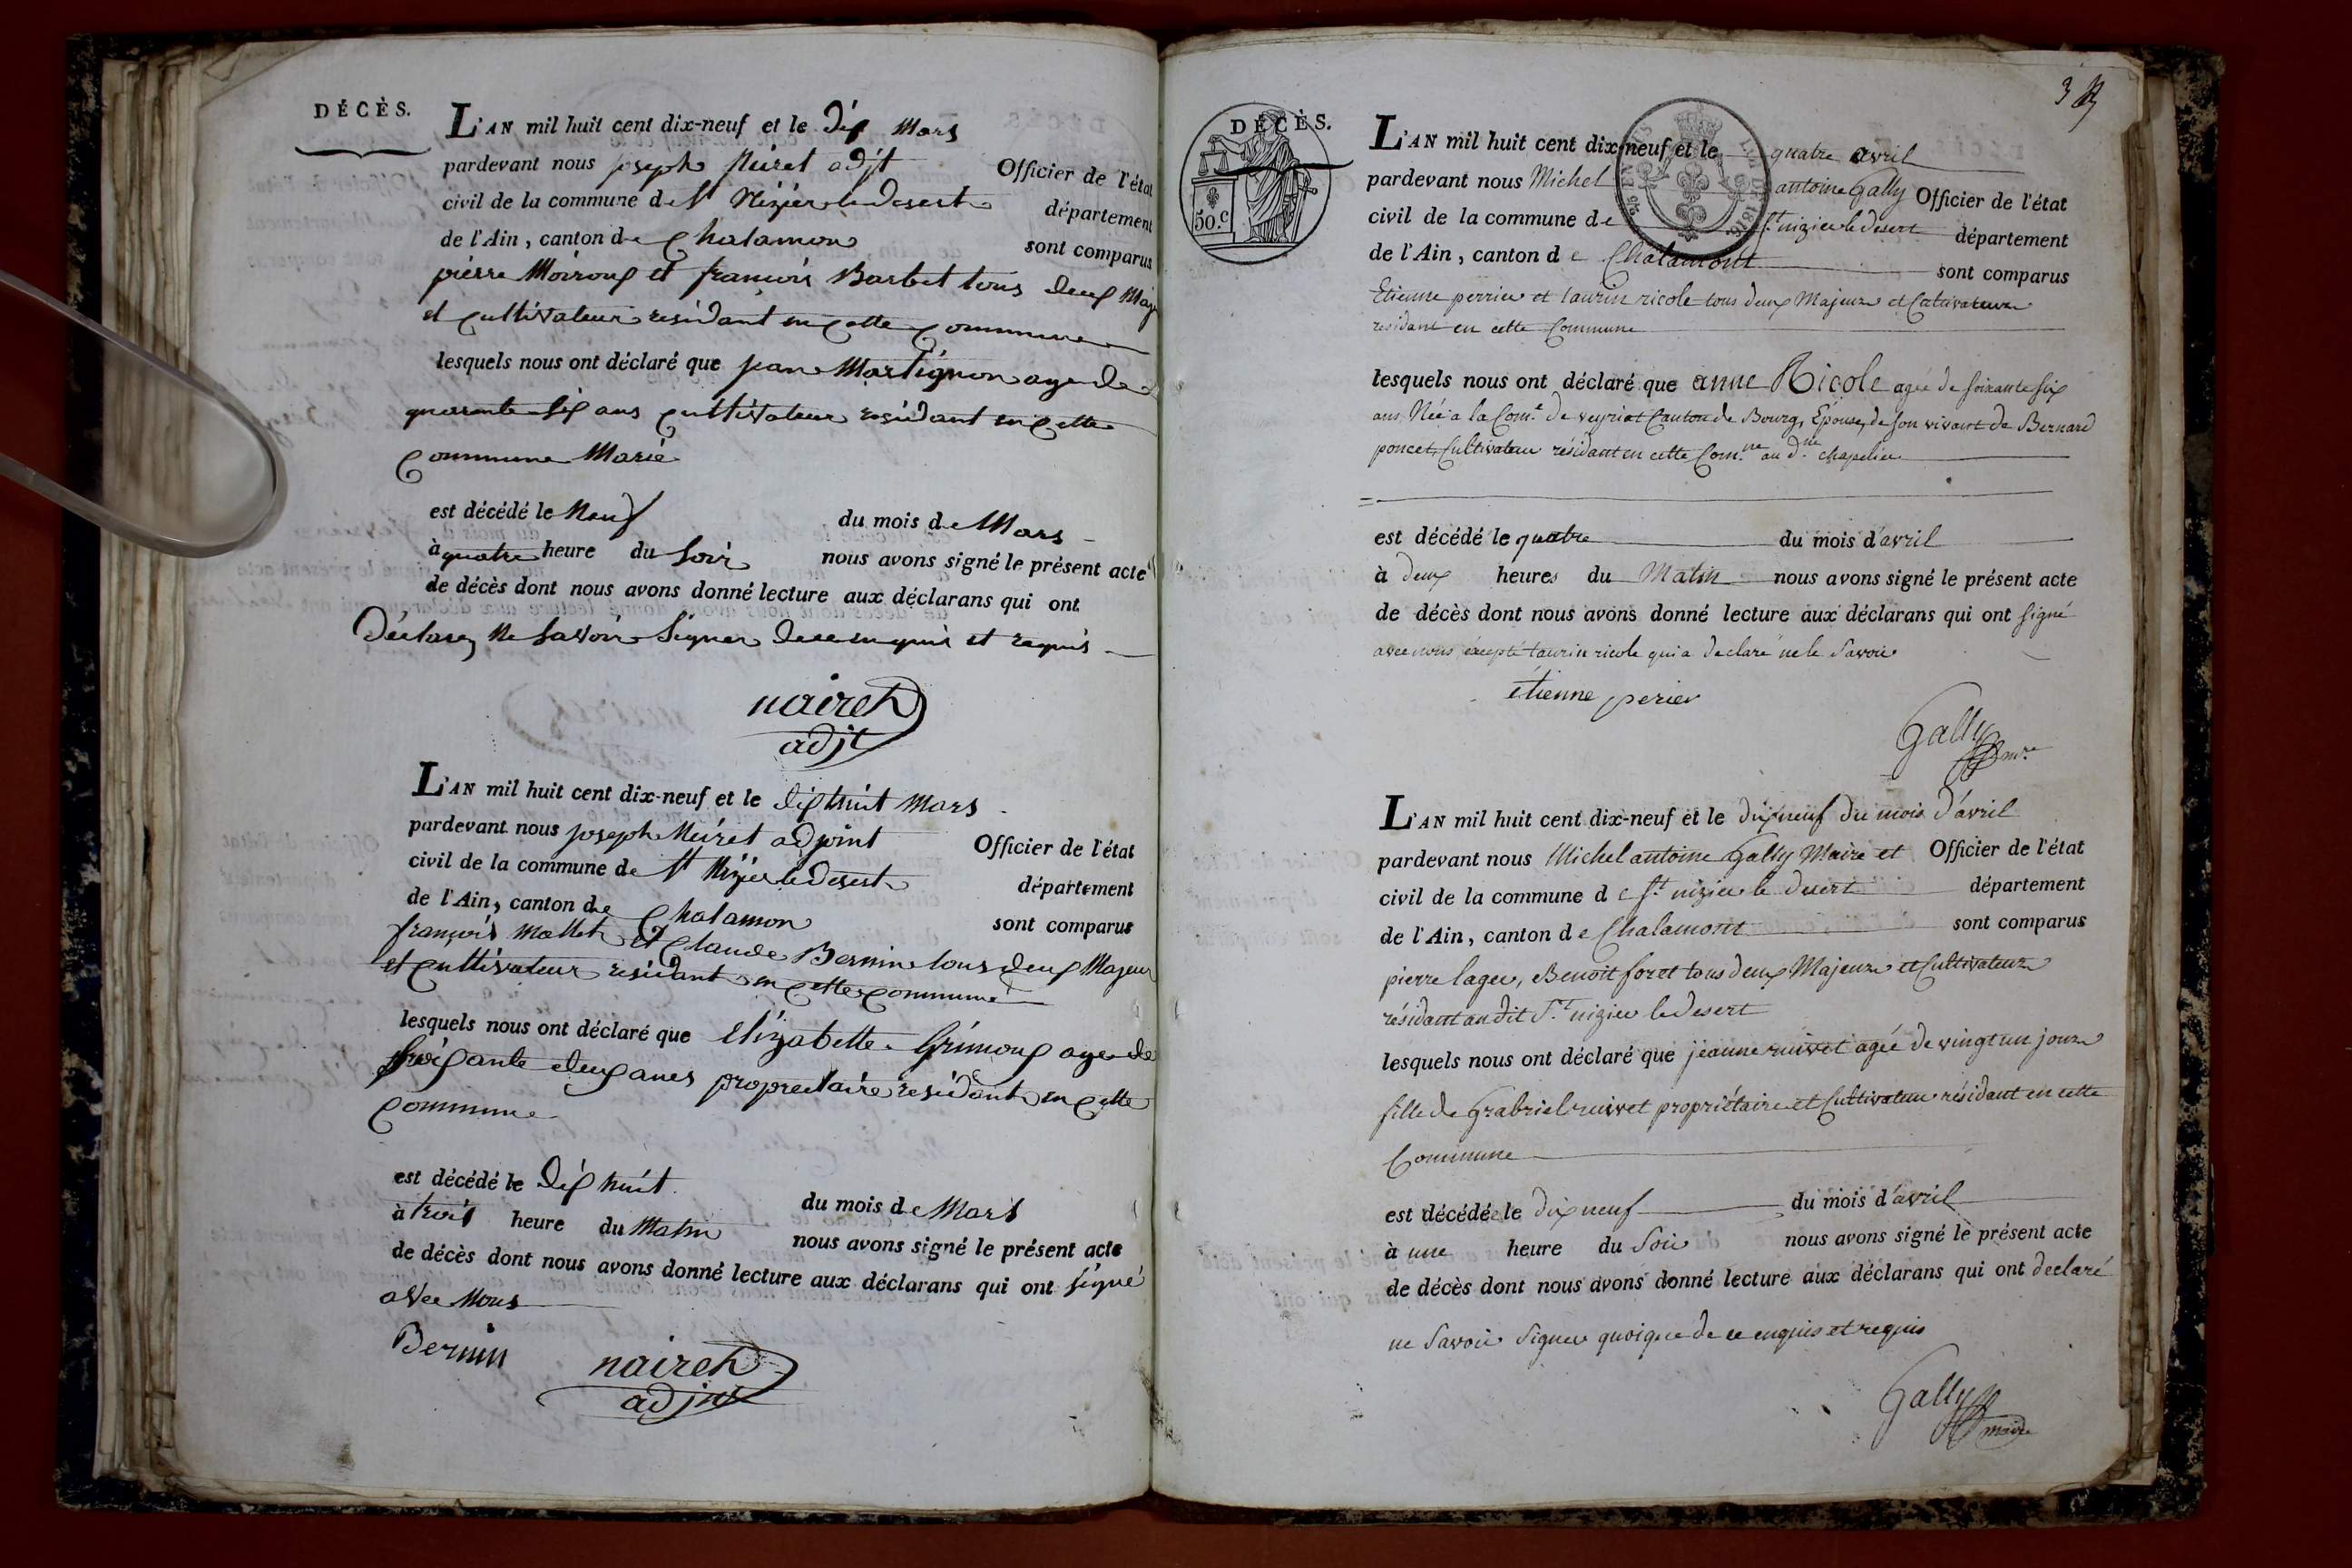 DÉCÈS.
L'AN mil huit cent dix-neuf et le dix Mars
pardevant nous joseph Neiret adjt Officier de l'état
civil de la commune de St Nizier le desert département
de l'Ain, canton de Chalamon sont comparus
pierre Moiroux et françois Barbet tous deux Maj
et cultivateur residant en cette commune
lesquels nous ont déclaré que jean Martignon age de
quarante six ans cultivateur residant en cette
commune Marié
est décédé le Neuf du mois de Mars
à quatre heure du soir nous avons signé le présent acte
de décès dont nous avons donné lecture aux déclarans qui ont
déclarez ne savoir signer de ce enquis et requis
nairet
adjt
L'AN mil huit cent dix-neuf et le dix huit mars
pardevant nous joseph Neiret adjoint Officier de l'état
civil de la commune de St Nizier le desert département
de l'Ain, canton de Chalamon sont comparus
françois Mallet et Claude Bernin tous deux Majeur
et cultivateur residant en cette commune
lesquels nous ont déclaré que Elizabette Grimoux age de
soixante deux anes proprietaire residant en cette
commune
est décédé le dix huit du mois de Mars
à trois heure du Matin nous avons signé le présent acte
de décès dont nous avons donné lecture aux déclarans qui ont signé
avec Nous
Bernin
nairet
adjnt
3
DÉCÈS.
50.c
L'AN mil huit cent dix-neuf et le quatre avril
pardevant nous Michel antoine Gally Officier de l'état
civil de la commune de St nizier le desert département
de l'Ain, canton de Chalamont sont comparus
Etienne perrier et taurin ricole tous deux Majeurs et Cultivateurs
residant en cette Commune
lesquels nous ont déclaré que anne Ricole agée de soixante six
ans, Née a la Com.e de veyriat Canton de Bourg, Epouse, de son vivant de Bernard
poncet, Cultivateur résidant en cette Com.ne au d.ne chapelier
est décédé le quatre du mois d'avril
à deux heures du Matin nous avons signé le présent acte
de décès dont nous avons donné lecture aux déclarans qui ont signé
avec nous éxcepté taurin ricole qui a déclaré ne le Savoir
étienne perier
Gally
mre
L'AN mil huit cent dix-neuf et le dixneuf du mois d'avril
pardevant nous Michel antoine Gally Maire et Officier de l'état
civil de la commune de St nizier le desert département
de l'Ain, canton de Chalamont sont comparus
pierre lager, Benoit foret tous deux Majeurs et Cultivateurs
résidant au dit St nizier le desert
lesquels nous ont déclaré que jeanne ruivet agée de vingt un jours
fille de Grabriel ruivet propriétaire et Cultivateur résidant en cette
Commune
est décédée le dixneuf du mois d'avril
à une heure du Soir nous avons signé le présent acte
de décès dont nous avons donné lecture aux déclarans qui ont declaré
ne Savoir Signer quoique de ce enquis et requis
Gally
maire